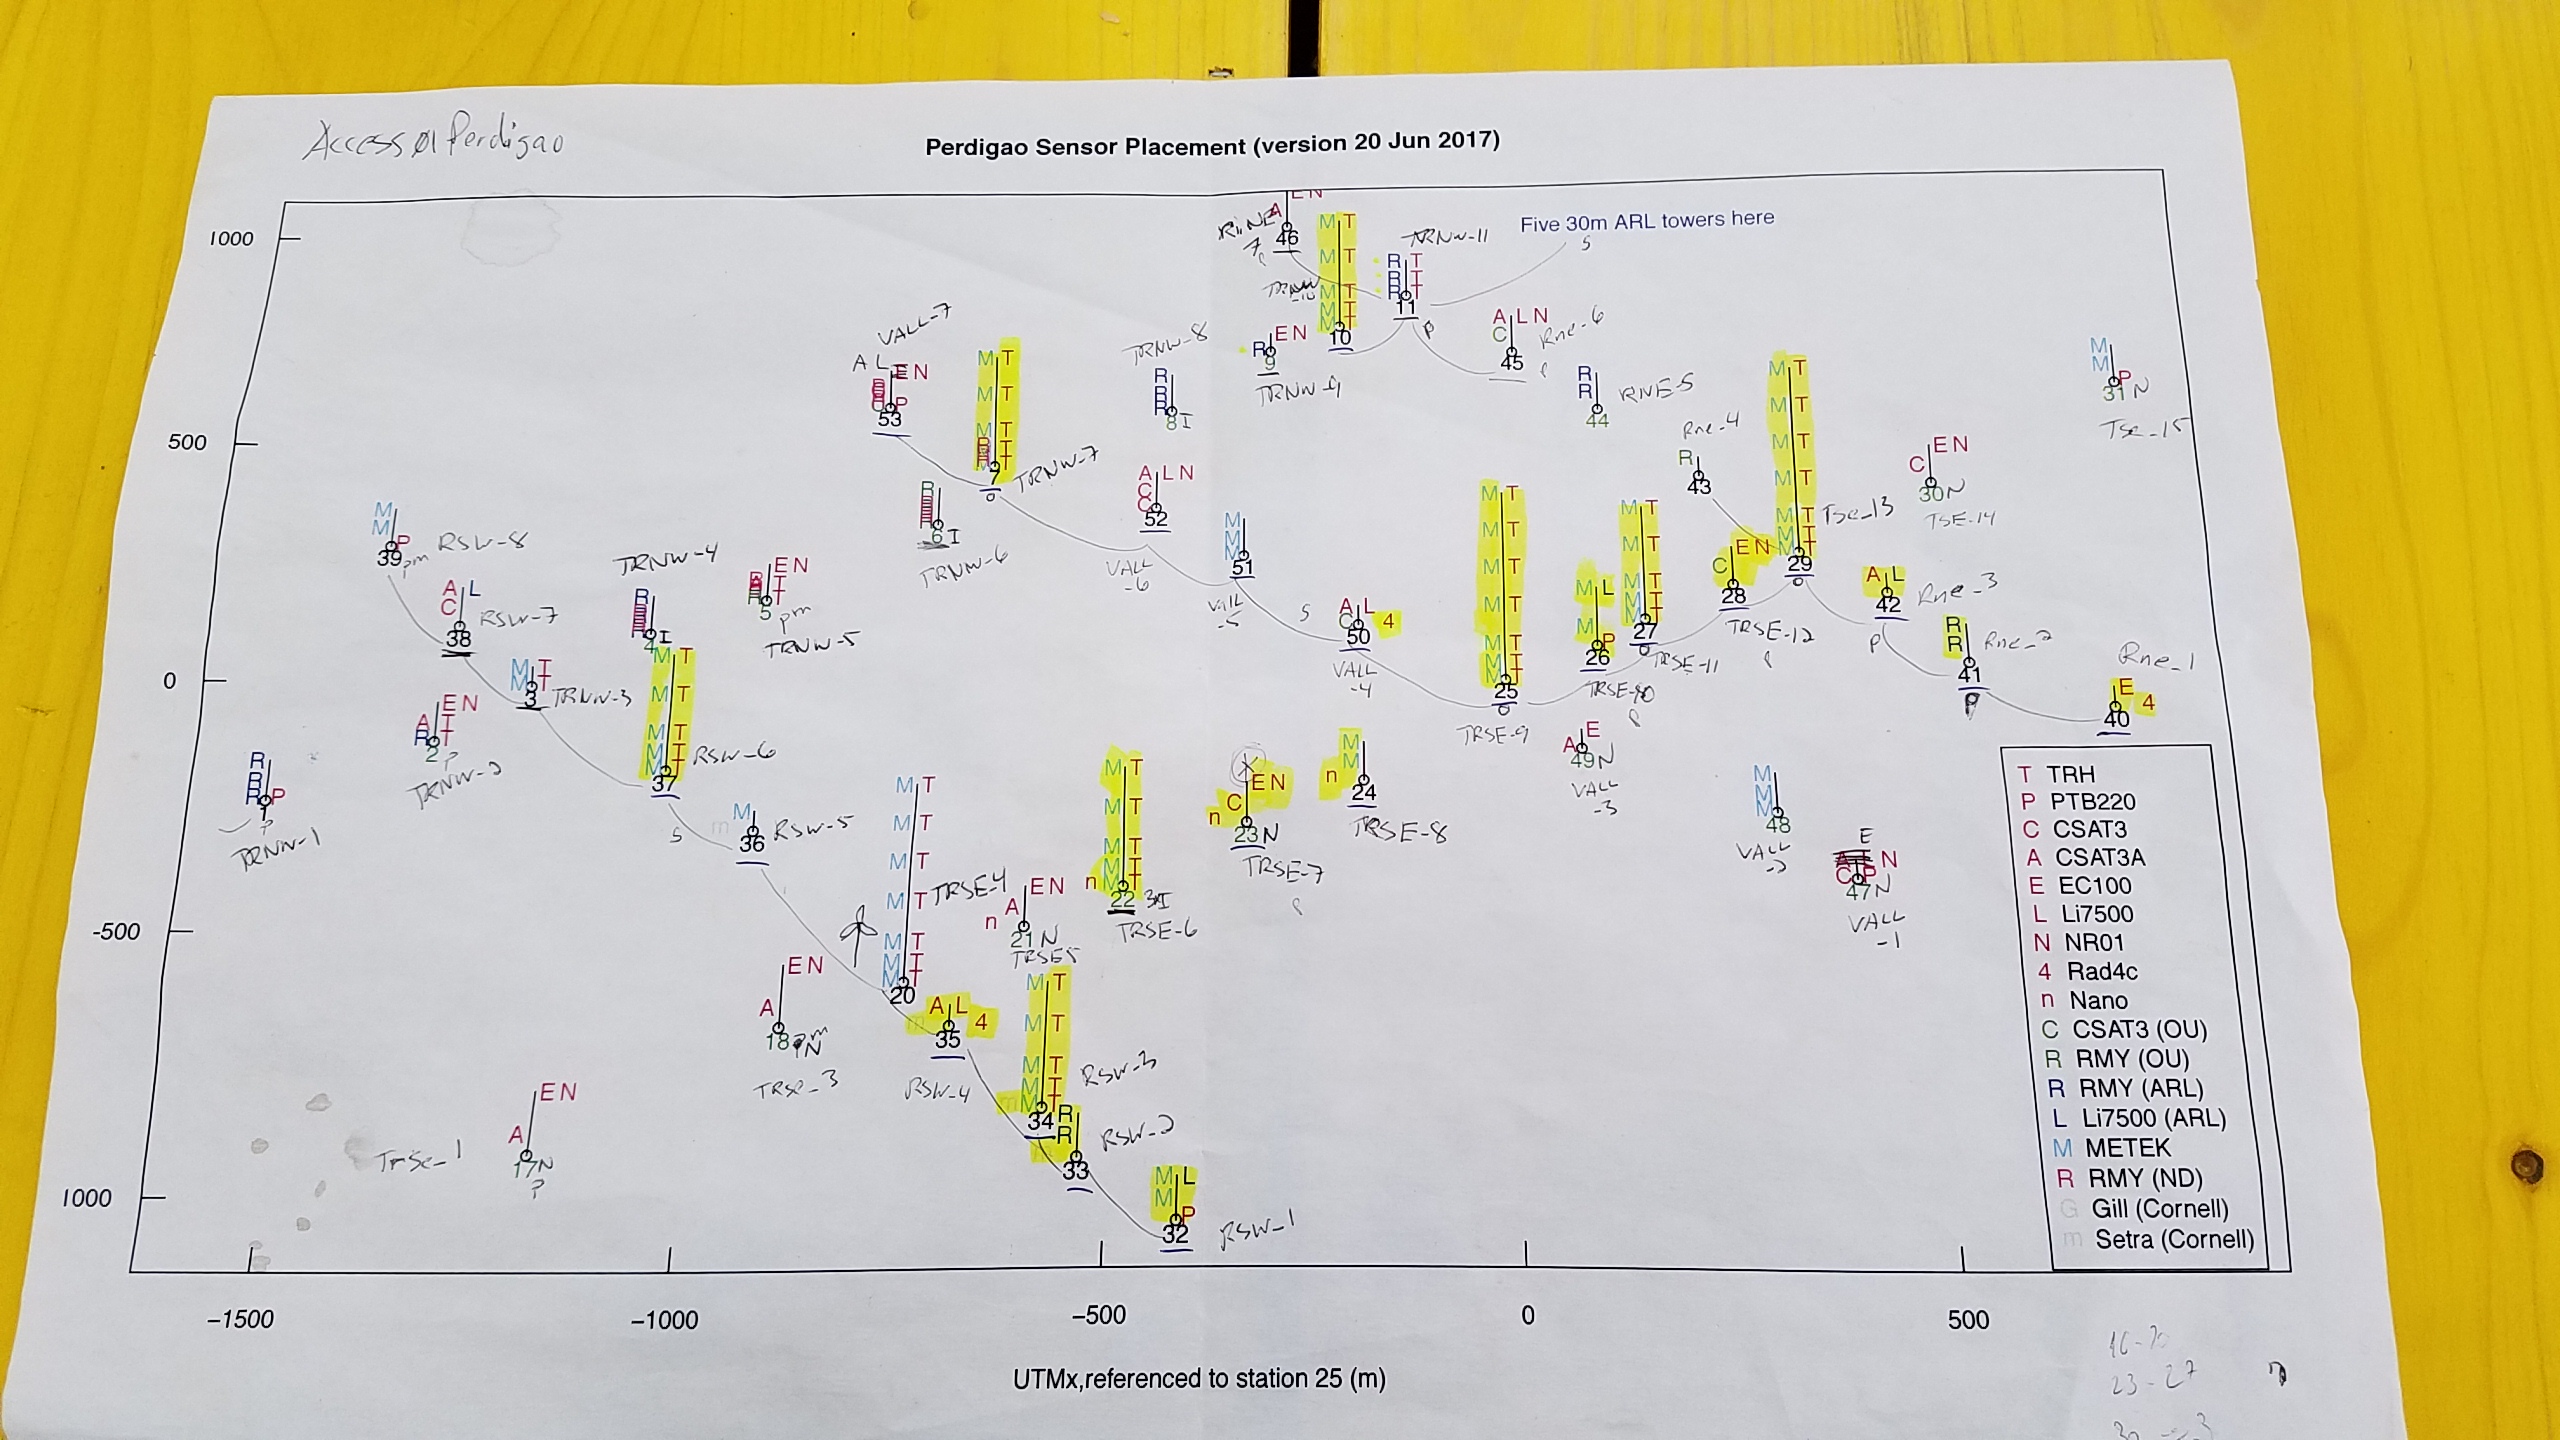 Access @ Perdigao
Perdigao Sensor Placement (version 20 Jun 2017)
1000
500
0
-500
1000
Five 30m ARL towers here
S
E N
A
46
M T
M T
M T
M T
M T
10
TRNW-11
R T
R T
R T
11
P
E N
R
9
TRNW-9
A L N
C
45
Rne-6
VALL-7
A L E N
P
53
M T
M T
M T
T
T
7
TRNW-7
TRNW-8
R
R
R
R
8 I
R
R
44
RNE-5
Rne-4
R
43
M T
M T
M T
M T
M T
M T
M T
29
Tse-13
M
M P
31 N
Tse-15
E N
C
30 N
TSE-14
M
M P
39 pm
RSW-8
A L
C
38
RSW-7
TRNW-4
R
4 I
E N
5 pm
TRNW-5
R
6 I
TRNW-6
A L N
C
C
52
VALL
-6
M
M
M
M
51
VALL
-5
S
A L
C 4
50
VALL
-4
M T
M T
M T
M T
M T
M T
M T
25
TRSE-9
M L
M P
26
TRSE-10
M T
M T
M T
M T
M T
27
TRSE-11
E N
C
28
TRSE-12
A L
42
Rne-3
P
R
R
41
P
Rne-2
Rne-1
E
4
40
M T
M T
3
TRNW-3
E N
A T
R T
2 P
TRNW-2
R
R
R P
1
P
TRNW-1
M T
M T
M T
M T
M T
37
RSW-6
S
m M
36
RSW-5
M T
M T
M T
M T
M T
M T
M T
20
TRSE-4
E N
A
n
21 N
TRSE5
M T
M T
M T
M T
n M T
22 3xI
TRSE-6
X
E N
C
n
23 N
TRSE-7
M
M
n
24
TRSE-8
E
A
49 N
VALL
-3
M
M
M
M
48
VALL
-2
E
N
C P
47 N
VALL
-1
E N
A
18 pm
N
TRSE-3
A L
m 4
35
RSW-4
M T
M T
M T
M T
m M T
34
RSW-3
R
R
m
33
RSW-2
M L
M
P
32
RSW-1
E N
A
17 N
P
Trse-1
T TRH
P PTB220
C CSAT3
A CSAT3A
E EC100
L Li7500
N NR01
4 Rad4c
n Nano
C CSAT3 (OU)
R RMY (OU)
R RMY (ARL)
L Li7500 (ARL)
M METEK
R RMY (ND)
G Gill (Cornell)
m Setra (Cornell)
−1500
−1000
−500
0
500
UTMx,referenced to station 25 (m)
23-27